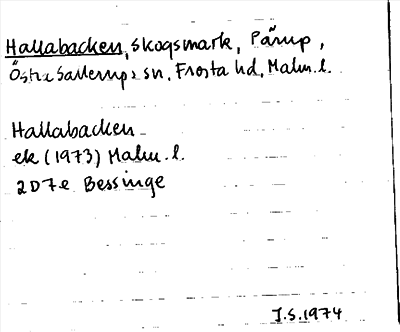 Hallabacken, skogsmark, Pårup,
Östra Sallerups sn, Frosta hd, Malm.l.
Hallabacken
ek (1973) Malm.l.
2D7e Bessinge
J.S.1974